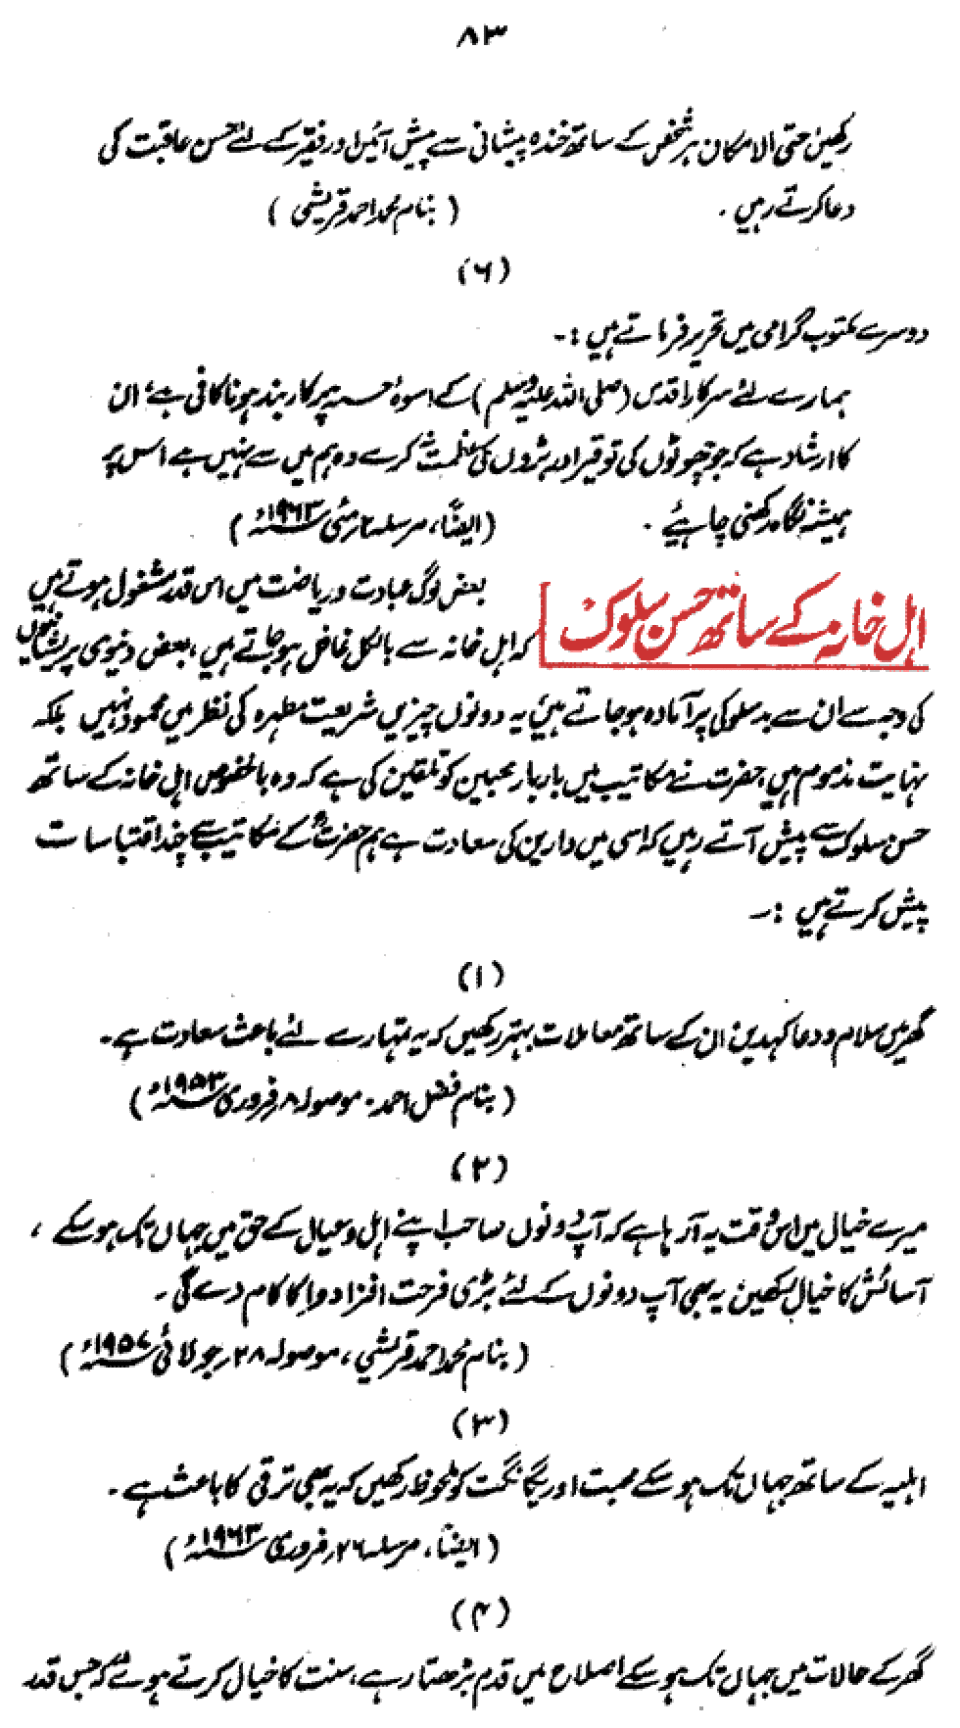 ۸۳
رکھیں حتی الامکان ہر شخص کے ساتھ خندہ پیشانی سے پیش آئیں اور فقیر کے لئے حسن عاقبت کی
دعا کرتے رہیں ۔ ( بنام محمد احمد قریشی )
(۶)
دوسرے مکتوب گرامی میں تحریر فرماتے ہیں :۔
ہمارے لئے سرکار اقدس (صلی اللہ علیہ وسلم) کے اسوۂ حسنہ پر کاربند ہونا کافی ہے، ان
کا ارشاد ہے کہ جو چھوٹوں کی توقیر اور بڑوں کی عظمت نہ کرے وہ ہم میں سے نہیں ہے اس پر
ہمیشہ نگاہ رکھنی چاہیئے ۔ (ایضاً، مرسلہ ۲ مئی ۱۹۶۳ء)
اہل خانہ کے ساتھ حسن سلوک
بعض لوگ عبادت و ریاضت میں اس قدر مشغول ہوتے ہیں
کہ اہل خانہ سے بالکل غافل ہو جاتے ہیں، بعض دنیوی پریشانیوں
کی وجہ سے ان سے بدسلوکی پر آمادہ ہو جاتے ہیں یہ دونوں چیزیں شریعت مطہرہ کی نظر میں محمود نہیں بلکہ
نہایت مذموم ہیں، حضرت نے مکاتیب میں بار بار محبین کو تلقین کی ہے کہ وہ بالخصوص اہل خانہ کے ساتھ
حسن سلوک سے پیش آتے رہیں کہ اسی میں دارین کی سعادت ہے ہم حضرتؒ کے مکاتیب سے چند اقتباسات
پیش کرتے ہیں :۔
(۱)
گھر میں سلام و دعا کہدیں ان کے ساتھ معاملات بہتر رکھیں کہ یہ تمہارے لئے باعث سعادت ہے۔
( بنام فضل احمد ۔ موصولہ ۸ فروری ۱۹۵۳ء)
(۲)
میرے خیال میں اس وقت یہ آ رہا ہے کہ آپ دونوں صاحب اپنے اہل و عیال کے حق میں جہاں تک ہو سکے ،
آسائش کا خیال رکھیں یہ بھی آپ دونوں کے لئے بڑی فرحت افزا دوا کا کام دے گی ۔
( بنام محمد احمد قریشی ، موصولہ ۲۸ جولائی ۱۹۵۷ء)
(۳)
اہلیہ کے ساتھ جہاں تک ہو سکے محبت اور یگانگت کو ملحوظ رکھیں کہ یہ بھی ترقی کا باعث ہے ۔
( ایضاً ، مرسلہ ۲۶ فروری ۱۹۶۳ء)
(۴)
گھر کے حالات میں جہاں تک ہو سکے اصلاح میں قدم بڑھتا رہے، سنت کا خیال کرتے ہوئے کہ جس قدر